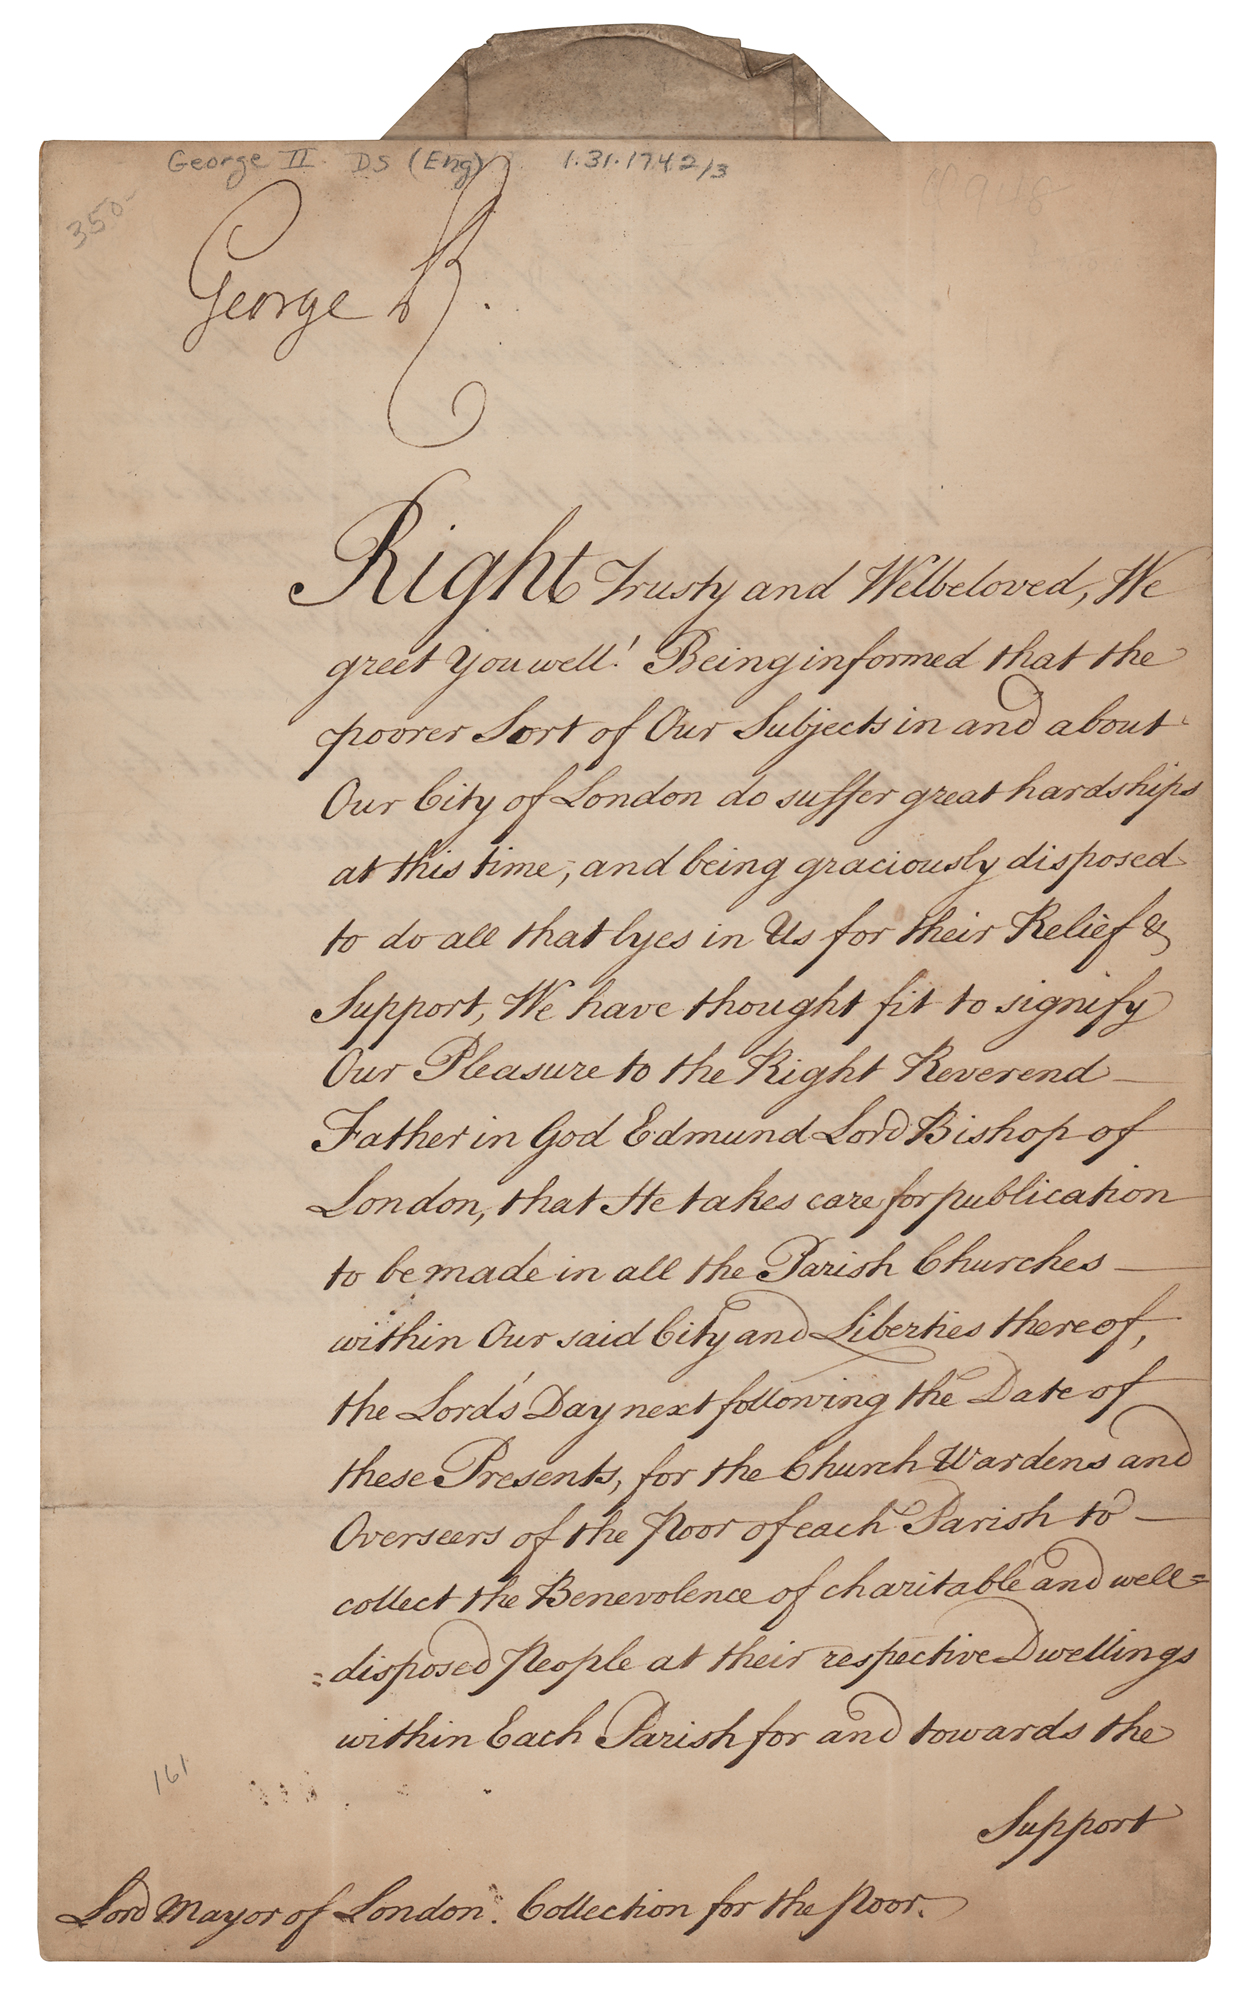 George II. DS (Eng) 1.31.1742/3
350-
George R.
Right Trusty and Welbeloved, We
greet You well! Being informed that the
poorer Sort of Our Subjects in and about
Our City of London do suffer great hardships
at this time, and being graciously disposed
to do all that lyes in Us for their Relief &
Support, We have thought fit to signify
Our Pleasure to the Right Reverend
Father in God Edmund Lord Bishop of
London, that He takes care for publication
to be made in all the Parish Churches
within Our said City and Liberties thereof,
the Lord's Day next following the Date of
these Presents, for the Church Wardens and
Overseers of the Poor of each Parish to
collect the Benevolence of charitable and well=
=disposed People at their respective Dwellings
within Each Parish for and towards the
Support
161
Lord Mayor of London. Collection for the Poor.